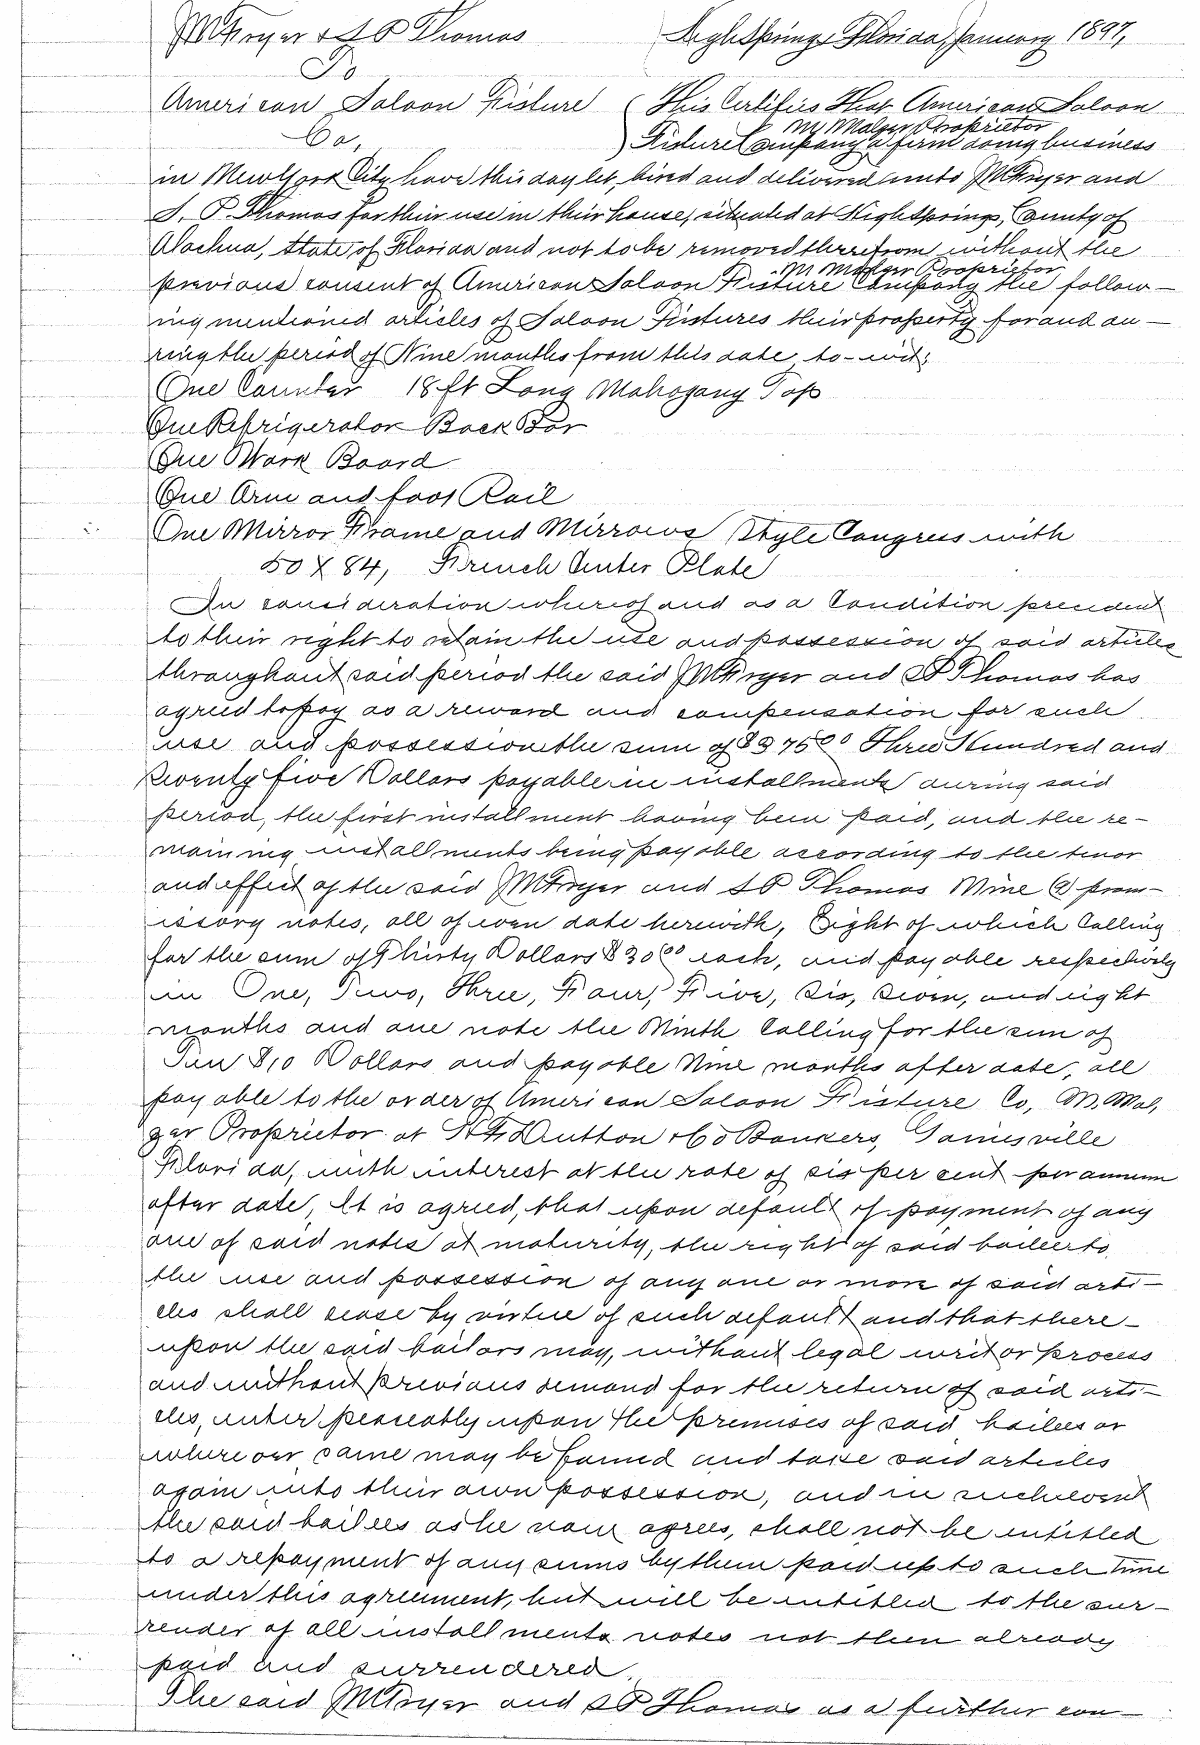 J M Fryer & S P Thomas
High Springs Florida, January 1897,
To
American Saloon Fixture
Co,
This Certifies That American Saloon
M Malzer Proprietor
Fixture Company a firm doing business
in New York City have this day let, hired and delivered unto J M Fryer and
S. P. Thomas for their use in their house, situated at High Springs, County of
Alachua, State of Florida and not to be removed therefrom without the
M Malzer Proprietor
previous consent of American Saloon Fixture Company the follow-
ing mentioned articles of Saloon Fixtures their property for and du-
ring the period of Nine months from this date to-wit;
One Counter 18 ft Long Mahogany Top
One Refrigerator Back Bar
One Work Board
One Arm and foot Rail
One Mirror Frame and Mirrows Style Congress with
50 X 84, French Center Plate
In consideration whereof and as a Condition precedent
to their right to retain the use and possession of said articles
throughout said period the said J M Fryer and S P Thomas has
agreed to pay as a reward and compensation for such
use and possession the sum of $375 00 Three Hundred and
Seventy five Dollars payable in installments during said
period, the first installment having been paid, and the re-
maining installments being payable according to the tenor
and effect of the said J M Fryer and S P Thomas Nine (9) prom-
issory notes, all of even date herewith, Eight of which Calling
for the sum of Thirty Dollars $30 00 each, and payable respectively
in One, Two, Three, Four, Five, Six, Seven, and eight
months and one note the Ninth Calling for the sum of
Ten $10 Dollars and payable Nine months after date, all
payable to the order of American Saloon Fixture Co, M. Mal,
zer Proprietor at H F Dutton & Co Bankers, Gainesville
Florida, with interest at the rate of six per cent per annum
after date, It is agreed, that upon default of payment of any
one of said notes at maturity, the right of said bailees to
the use and possession of any one or more of said arti-
cles shall cease by virtue of such default and that there-
upon the said bailors may, without legal writ or process
and without previous demand for the return of said arti-
cles, enter peaceably upon the premises of said bailees or
where ever same may be found and take said articles
again into their own possession, and in such event
the said bailees as he now agrees, shall not be entitled
to a repayment of any sums by them paid up to such time
under this agreement, but will be entitled to the sur-
render of all installments notes not then already
paid and surrendered.
The said J M Fryer and S P Thomas as a further con-